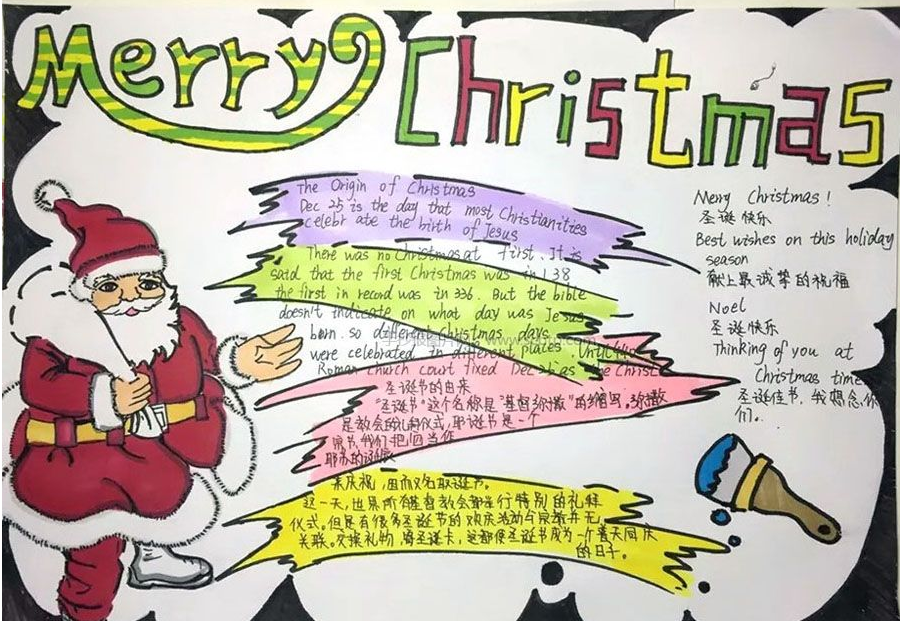 Merry Christmas
The Origin of Christmas
Dec 25 is the day that most Christianities
celebr ate the birth of Jesus
There was no Christmas at first. It is
said that the first Christmas was in 138
the first in record was in 336. But the bible
doesn't indicate on what day was Jesus
born. so different Christmas days
were celebrated in different places Until
Roman church court fixed Dec 25 as the Christ
圣诞节的由来
"圣诞节"这个名称是"基督弥撒"的缩写。弥撒
是教会的礼拜仪式。耶诞节是一个
宗教节我们把它当作
耶稣的诞辰
来庆祝,因而又名耶诞节。
这一天,世界所有基督教会都举行特别的礼拜
仪式。但是有很多圣诞节的欢庆活动与宗教并无
关联。交换礼物,寄圣诞卡,这都使圣诞节成为一个普天同庆
的日子。
Merry Christmas!
圣诞快乐
Best wishes on this holiday
season
献上最诚挚的祝福
Noel
圣诞快乐
Thinking of you at
Christmas time
圣诞佳节,我想念你
们。